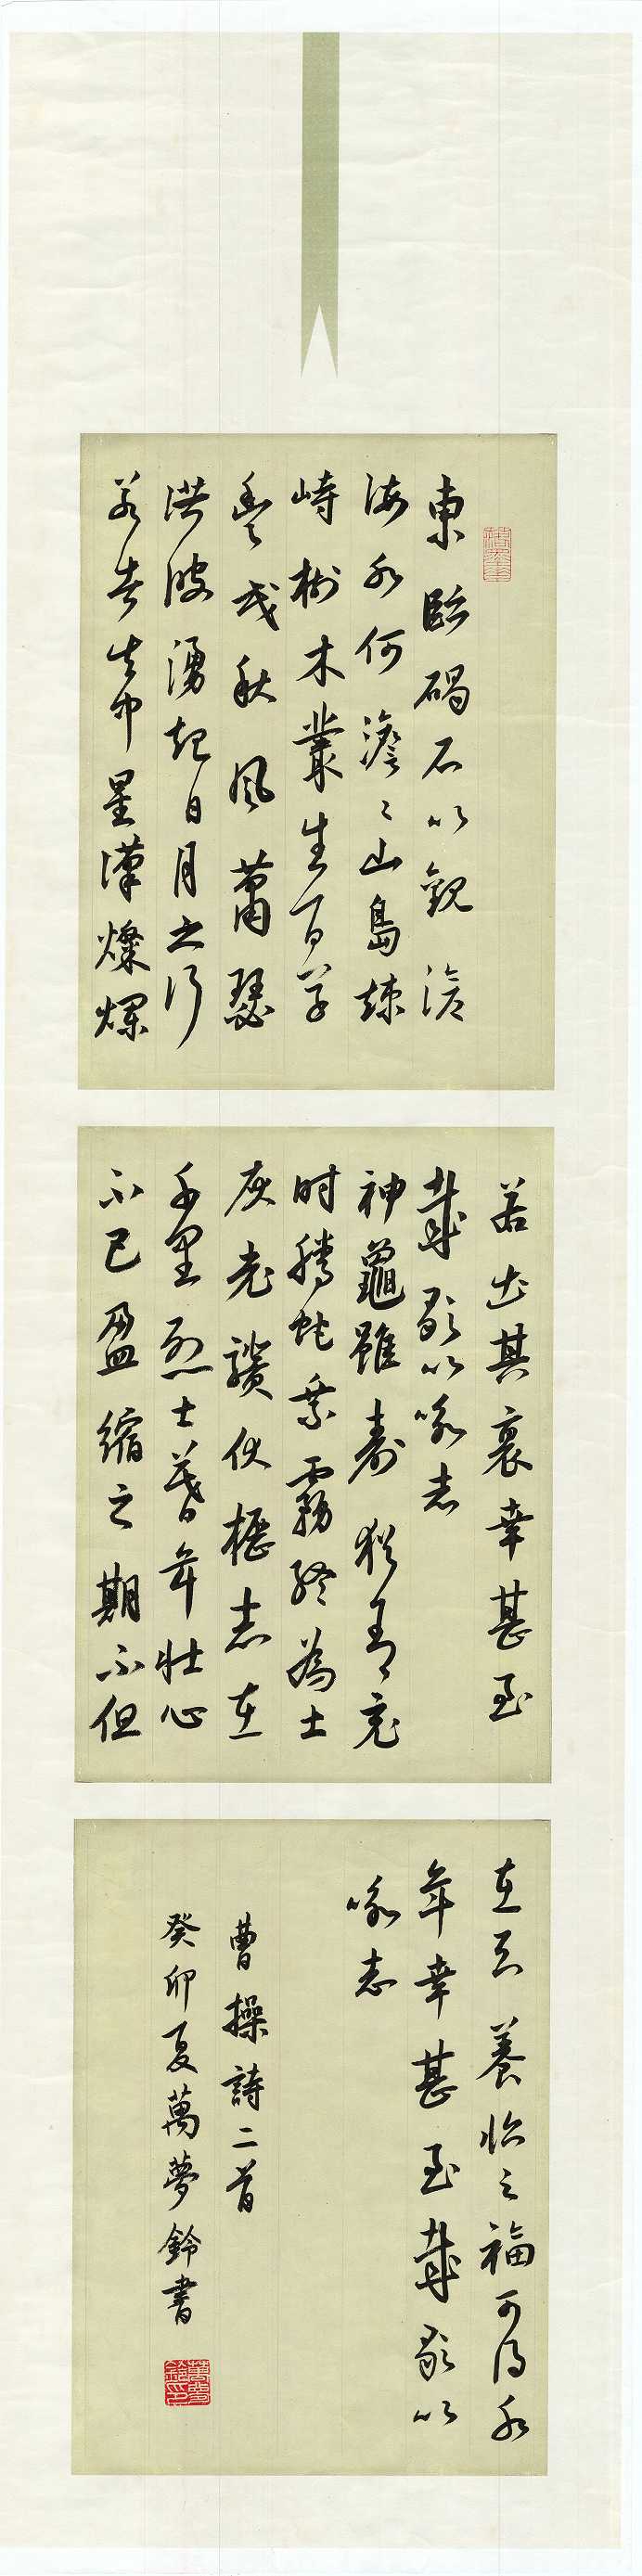 東臨碣石以觀滄
海水何澹〻山島竦
峙樹木叢生百草
豐茂秋風蕭瑟
洪波湧起日月之行
若出其中星漢燦爛
若出其裏幸甚至
哉歌以咏志
神龜雖壽猶有竟
時騰蛇乘霧終為土
灰老驥伏櫪志在
千里烈士暮年壯心
不已盈縮之期不但
在天養怡之福可得永
年幸甚至哉歌以
咏志
曹操詩二首
癸卯夏萬夢鈴書
萬夢鈴印